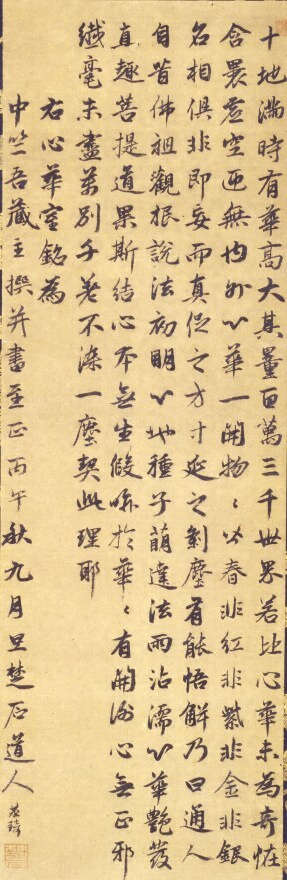 十地滿時有華高大其量百萬三千世界若比心華未為奇恠
含畏虛空匝無內外心華一開物〻皆春非紅非紫非金非銀
名相俱非即妄而真促之方寸延之剎塵有能悟解乃曰通人
自昔佛祖觀根說法初明心地種子萌達法雨沾濡心華艷發
直趣菩提道果斯結心本無生假喻於華〻有開謝心無正邪
纖毫未盡萬別千差不染一塵契此理耶
右心華室銘為
中竺吾藏主撰并書至正丙午秋九月旦楚石道人
梵琦